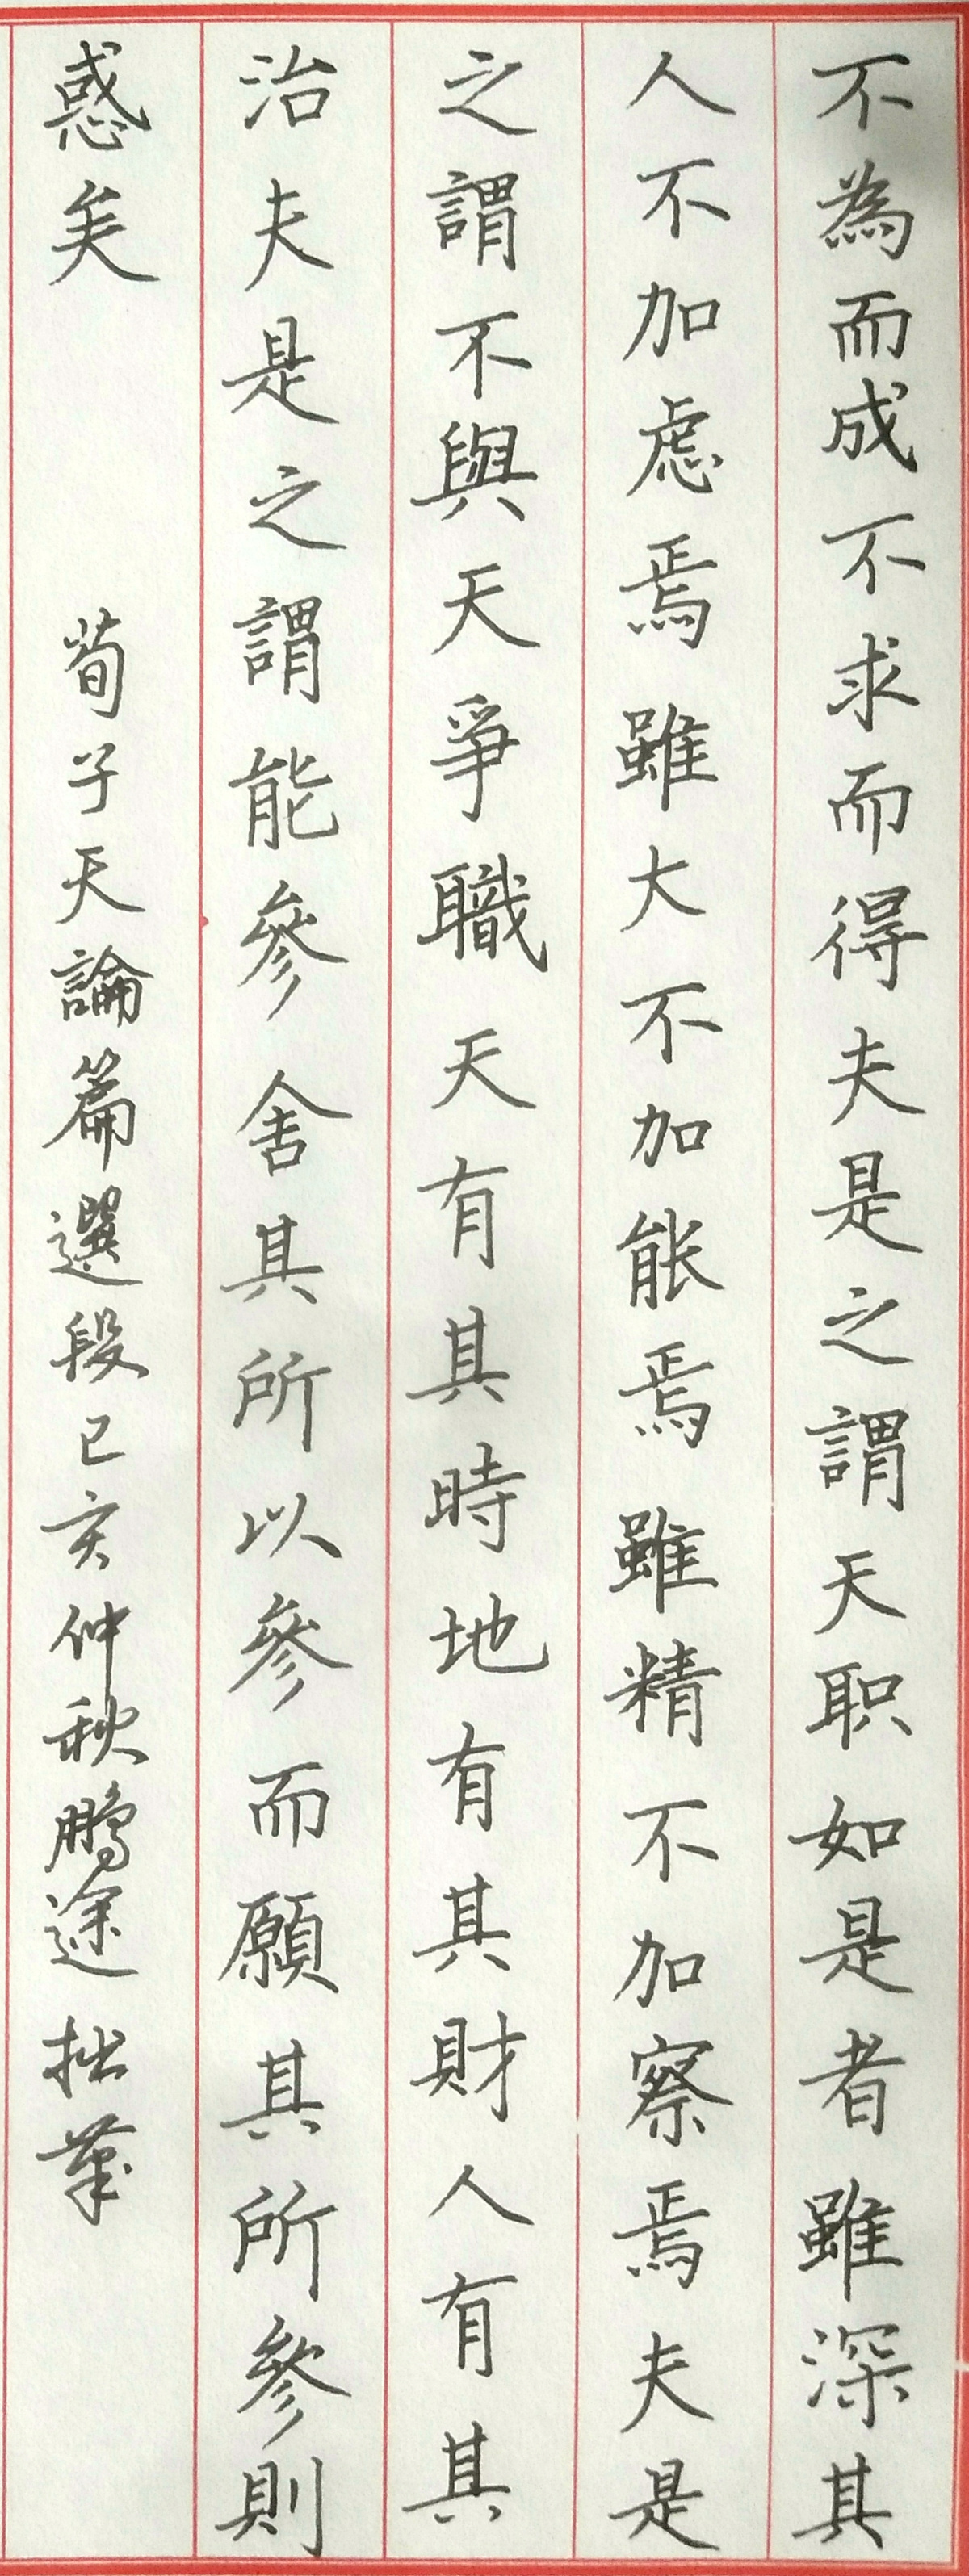 不為而成不求而得夫是之謂天职如是者雖深其
人不加虑焉雖大不加能焉雖精不加察焉夫是
之謂不與天爭職天有其時地有其財人有其
治夫是之謂能參舍其所以參而願其所參則
惑矣 荀子天論篇選段己亥仲秋鹏途拙筆